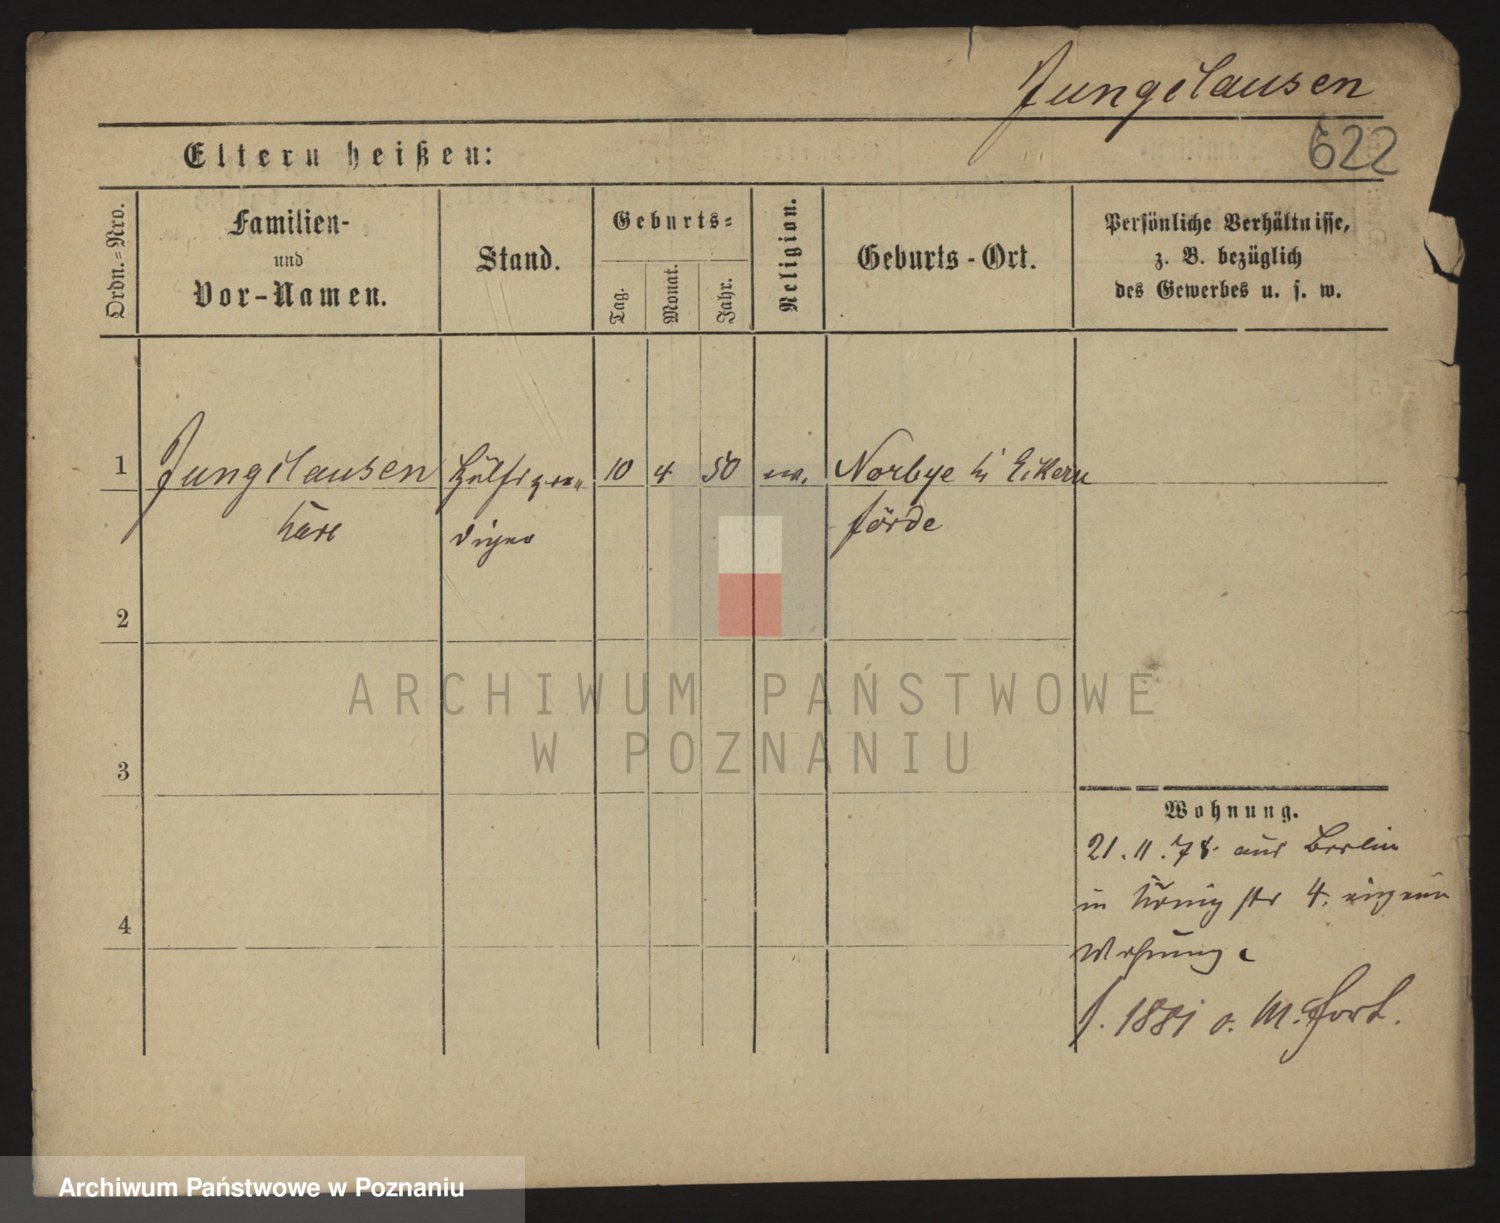 Jungclausen
622
Eltern heißen:
Ordn.=Nro.
Familien-
und
Vor-Namen.
Stand.
Geburts=
Tag.
Monat.
Jahr.
Religion.
Geburts-Ort.
Persönliche Verhältnisse,
z. B. bezüglich
des Gewerbes u. s. w.
1 Jungclausen Hülfspre- 10 4 50 ev. Norbye bei Eckern
Karl diger förde
2
3
4
Wohnung.
21. 11. 78. aus Berlin
in König str 4. eigene
Wohnung.
f. 1881 o. M. fort.
ARCHIWUM PAŃSTWOWE
W POZNANIU
Archiwum Państwowe w Poznaniu